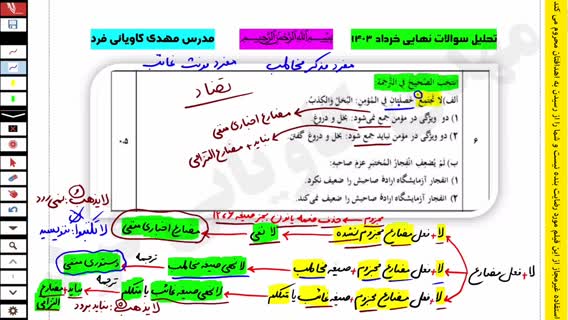 تحلیل سوالات نهایی خرداد ۱۴۰۳
بسم الله الرحمن الرحیم
مدرس مهدی کاویانی فرد
مفرد مذکر مخاطب
مفرد مونث غائب
انتخب الصحیح فی الترجمة
تضاد
الف) لا تجتمعُ خصلتان في المؤمن: البخل والکذب.
۱) دو ویژگی در مؤمن جمع نمی‌شود: بخل و دروغ.
مضارع اخباری منفی
۲) دو ویژگی در مؤمن نباید جمع شود: بخل و دروغ گفتن.
نباید + مضارع التزامی
۶
۰.۵
ب) لم یُضعِف انفجار المختبر عزم صاحبه:
۱) انفجار آزمایشگاه ارادهٔ صاحبش را ضعیف نکرد.
۲) انفجار آزمایشگاه ارادهٔ صاحبش را ضعیف نمی کند.
مجزوم
لا یذهبُ: نمی رود
لا تکتبوا: ننویسید
لا + فعل مضارع
لا + فعل مضارع مجزوم نشده
لا نفی
مضارع اخباری منفی
لا + فعل مضارع مجزوم + صیغه مخاطب
لا نهی صیغه مخاطب
ترجمه
دستوری منفی
لا + فعل مضارع مجزوم + صیغه غائب یا متکلم
لا نهی صیغه غائب یا متکلم
ترجمه
نباید + مضارع التزامی
لا یذهبْ: نباید برود